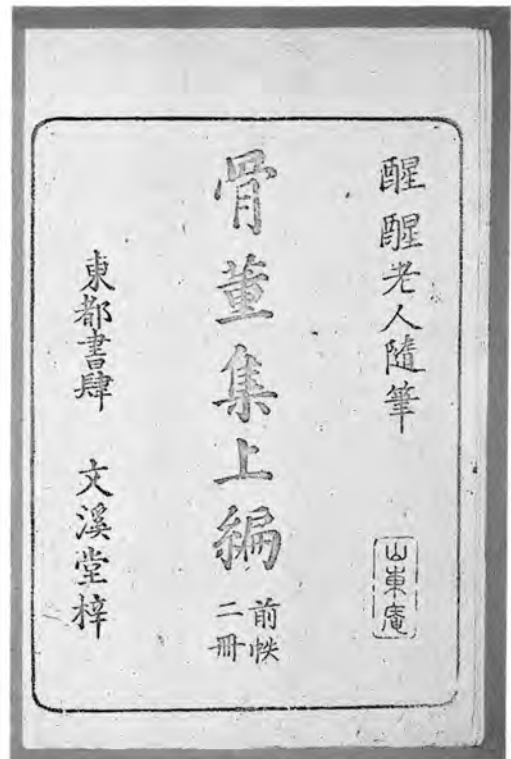 醒醒老人隨筆
山東庵
骨董集上編
前帙
二冊
東都書肆　文溪堂梓